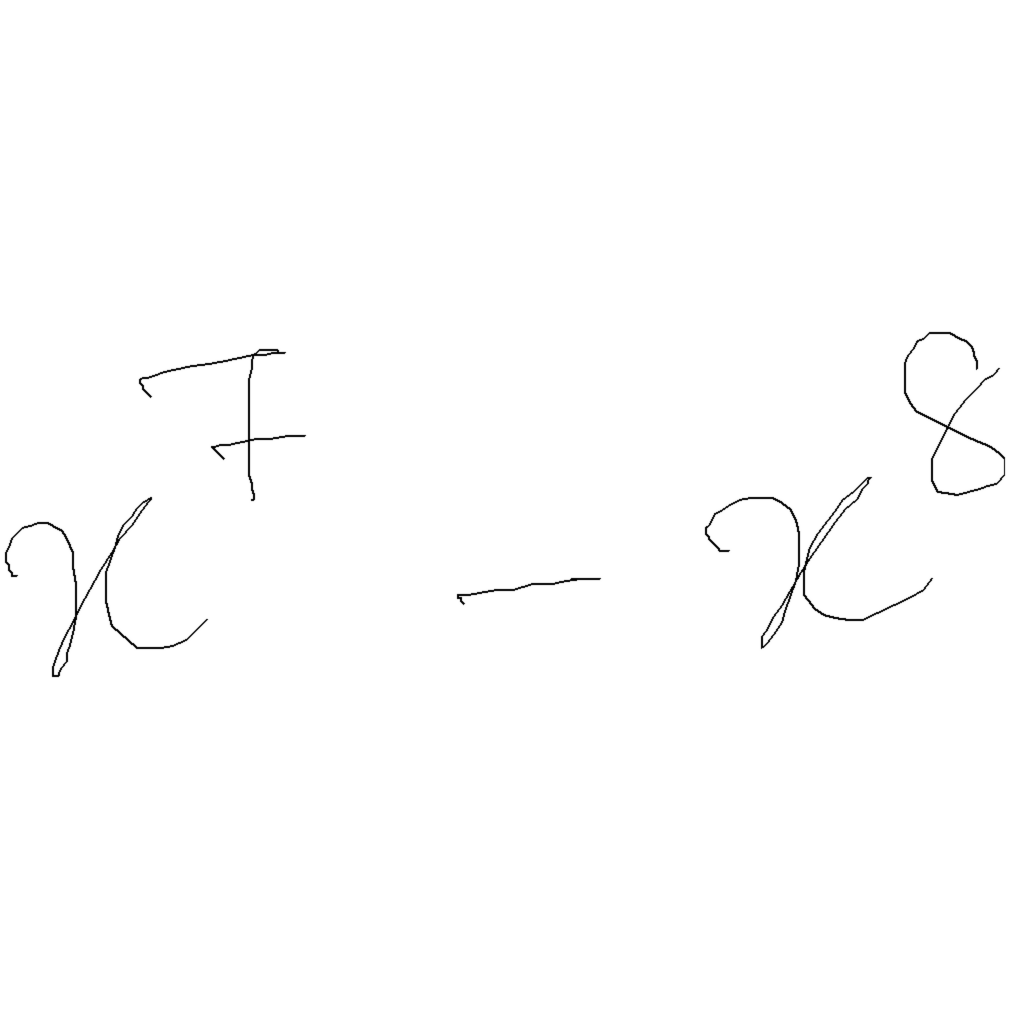 x⁷ − x⁸